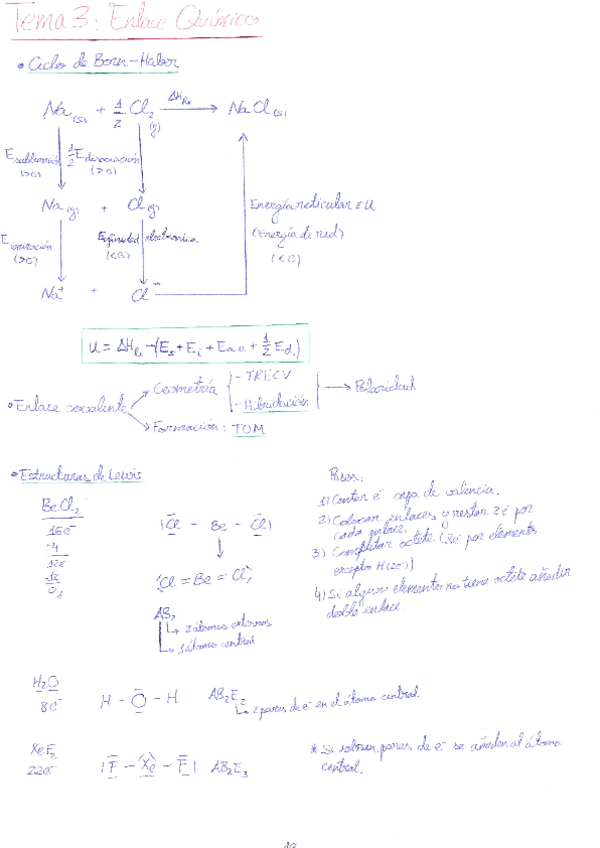 Tema 3: Enlace Químico
• Ciclos de Born-Haber
Na(s) + 1/2 Cl2 (g) ΔHR NaCl(s)
Esublimación (>0) 1/2 Edisociación (>0)
Na(g) + Cl(g)
Energía reticular = U
(energía de red)
(<0)
Eionización (>0) Eafinidad electronica (<0)
Na+ + Cl-
U = ΔHR - (Es + Ei + Ea.e + 1/2 Ed.)
• Enlace covalente
Geometría - TRECV
- Hibridación
Polaridad
Formación: TOM
• Estructuras de Lewis
BeCl2
16e-
-4
12e-
-12
0
|Cl - Be - Cl|
Cl = Be = Cl
AB2
2 átomos externos
1 átomo central
Pasos:
1) Contar e- capa de valencia.
2) Colocar enlaces y restar 2e- por
cada enlace.
3) Completar octete. (8e- por elemento
excepto H (2e-))
4) Si algun elemento no tiene octete añadir
doble enlace.
H2O
8e-
H - O - H
AB2E2
2 pares de e- en el átomo central.
XeF2
22e-
|F - Xe - F| AB2E3
* Si sobran pares de e- se añaden al átomo
central.